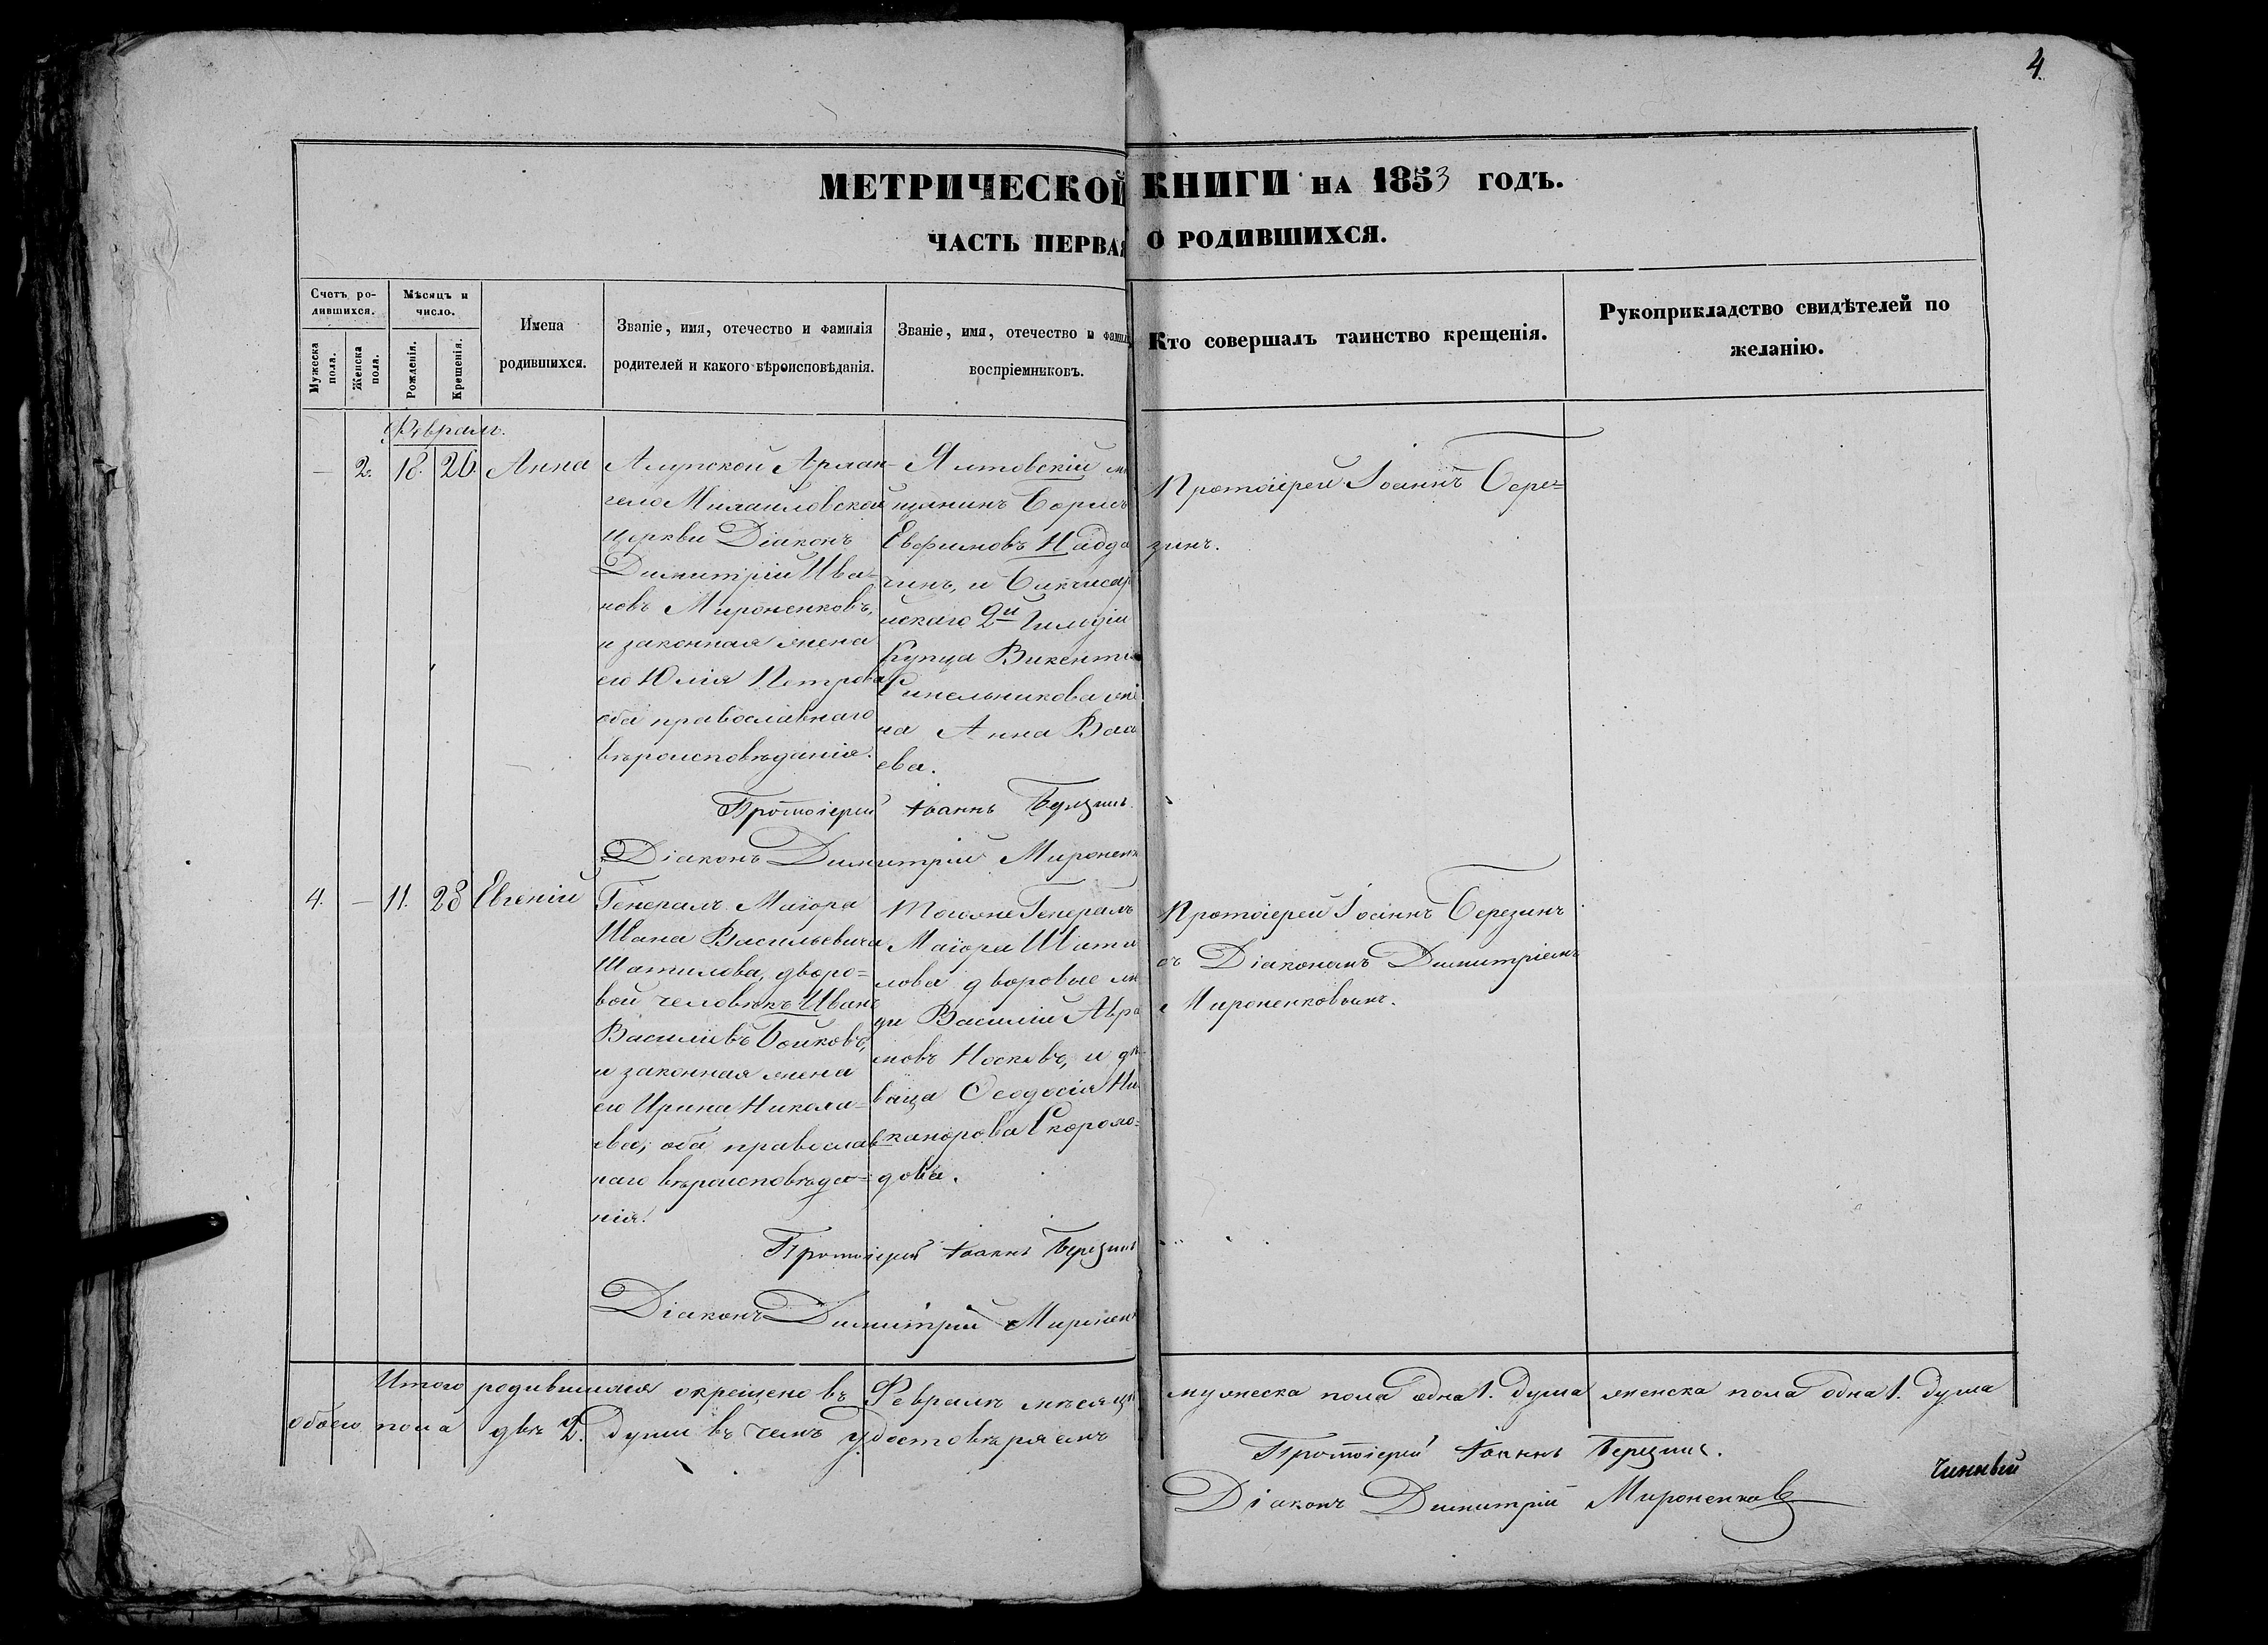 4
МЕТРИЧЕСКОЙ КНИГИ НА 1853 ГОДЪ.
ЧАСТЬ ПЕРВАЯ О РОДИВШИХСЯ.
Счетъ ро-
дившихся.
Мужеска пола.
Женска пола.
Мѣсяцъ и
число.
Рожденія.
Крещенія.
Имена
родившихся.
Званіе, имя, отечество и фамилія
родителей и какого вѣроисповѣданія.
Званіе, имя, отечество и фамил
воспріемниковъ.
Кто совершалъ таинство крещенія.
Рукоприкладство свидѣтелей по
желанію.
Февраль.
— 2. 18. 26. Анна
Алупской Архан-
гело Михаиловской
церкви Діаконъ
Димитрій Ива-
новъ Мироненковъ,
и законная жена
его Юлія Петрова
оба православнаго
вѣроисповѣданія.
Ялтовскій мѣ
щанинъ Борисъ
Евфимовъ
чинъ, и Бакчисар
йскаго 2й Гильдіи
Купца Викентія
Синельникова же
на Анна
ева.
Протоіерей Іоаннъ Бере=
зинъ.
Протоіерей Іоаннъ Березинъ
Діаконъ Димитрій Мироненк
4. — 11. 28 Евгеній
Генералъ Маіора
Ивана Васильевича
Шатилова, дворо=
вой человѣкъ Иванъ
Васильевъ Бойковъ,
и законная жена
его Ирина Никола=
ева, оба православ
наго вѣроисповѣда=
нія.
Тогоже Генералъ
Маіора Шати
лова дворовые лю
ди Василій Авра
мовъ Носковъ, и дѣ
вица Ѳеодосія Ни
канорова Скорохо=
дова.
Протоіерей Іоаннъ Березинъ
съ Діакономъ Димитріемъ
Мироненковымъ.
Протоіерей Іоаннъ Березинъ
Діаконъ Димитрій Миронен
Итого родившихся окрещено въ Февралѣ мѣсяцѣ мужеска пола одна 1. душа женска пола одна 1. душа
обоего пола двѣ 2. души въ чемъ удостовѣряемъ
Протоіерей Іоаннъ Березинъ.
Діаконъ Димитрій Мироненков